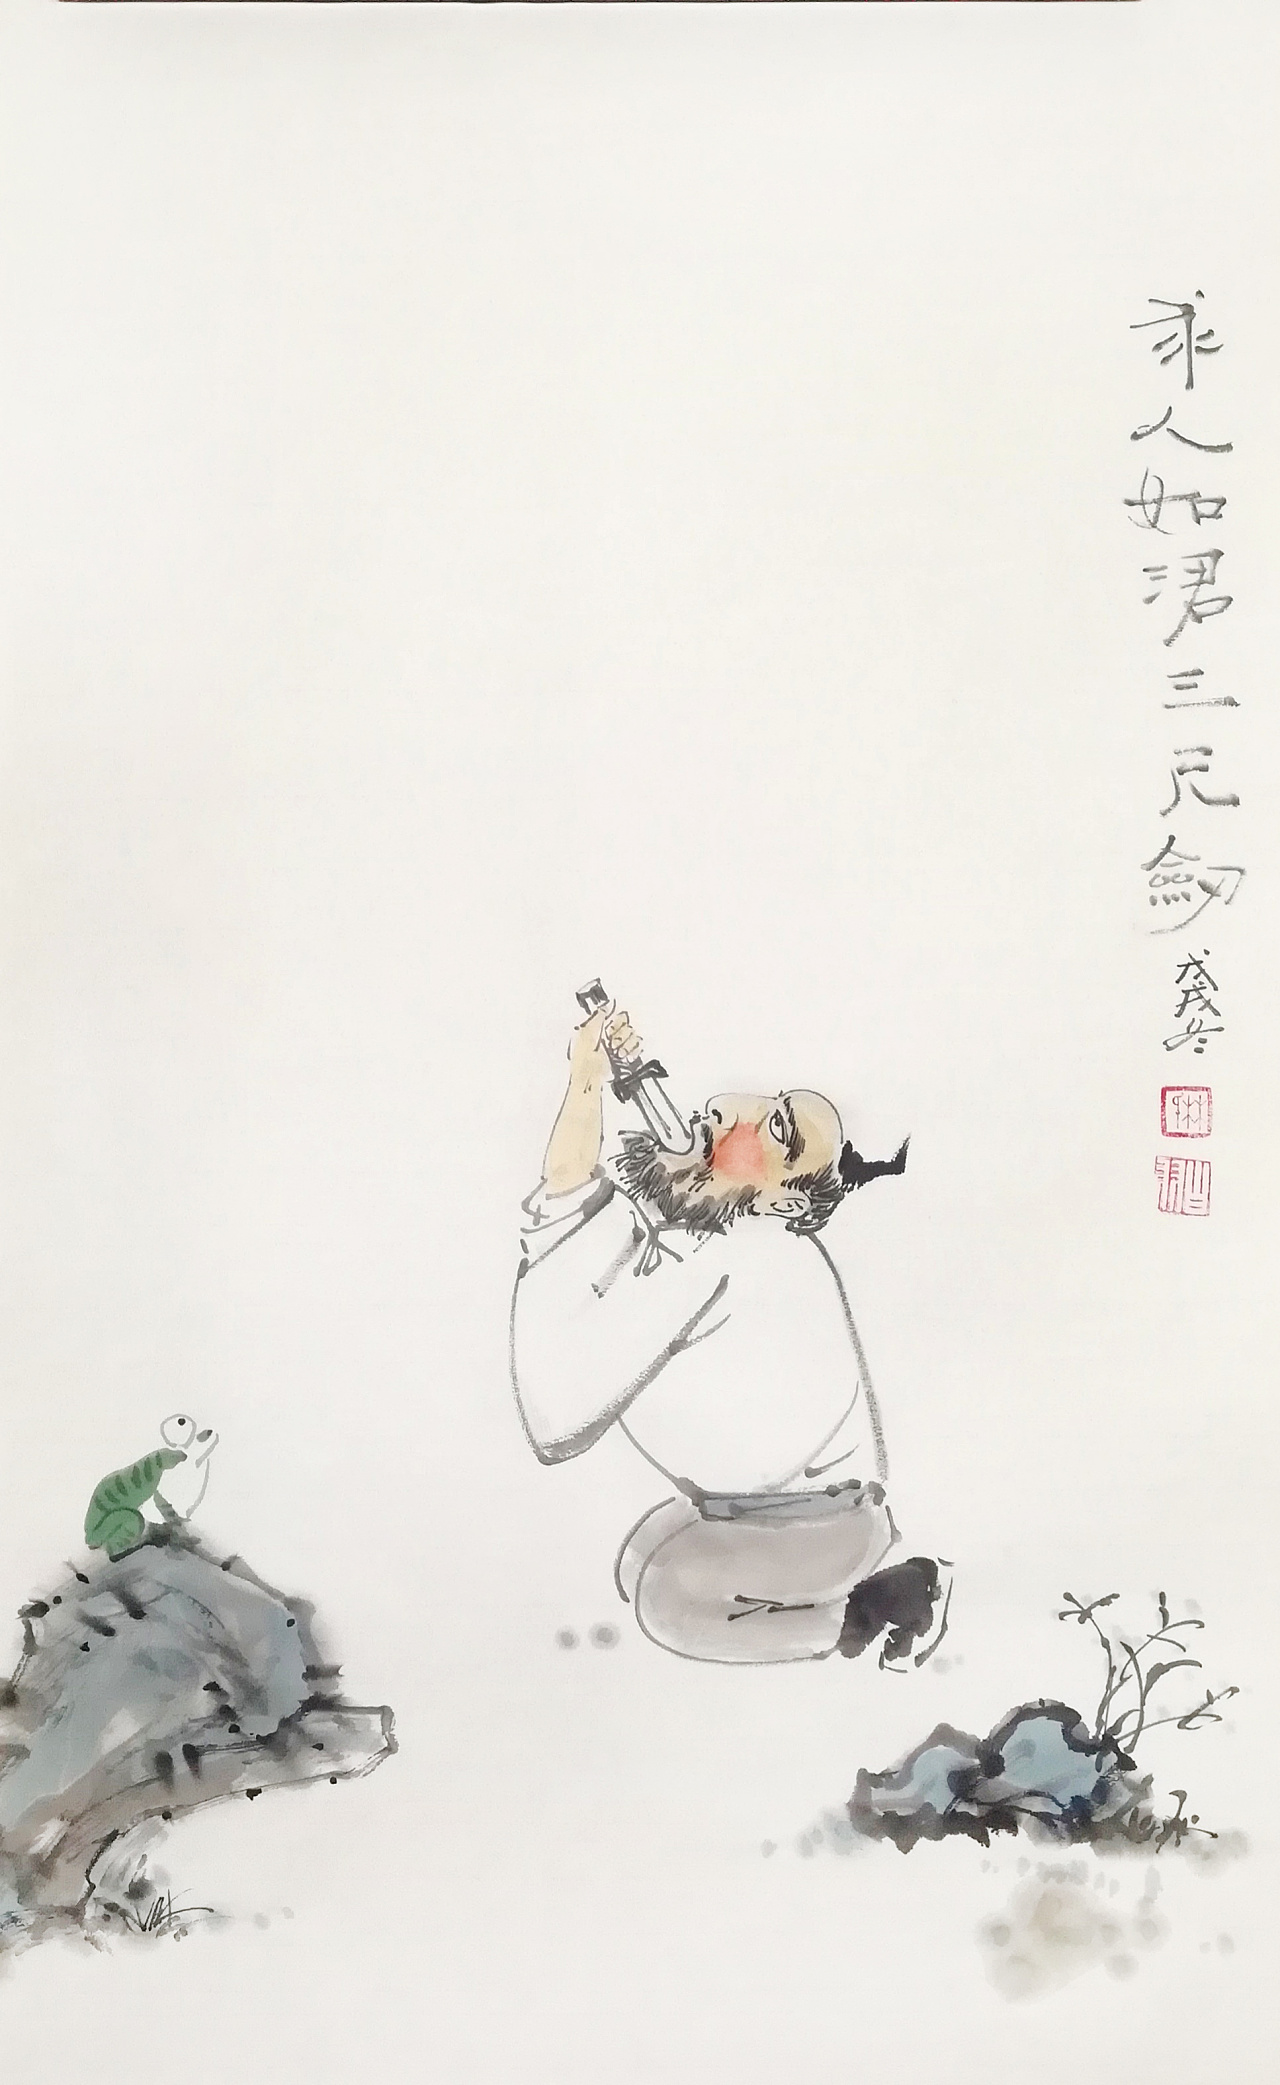 求人如涒三尺劒
戊戌冬